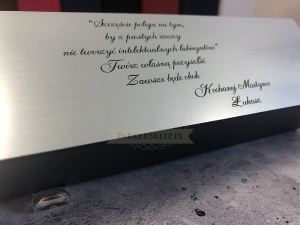 "Szczęście polega na tym,
by z prostych rzeczy
nie tworzyć intelektualnych labiryntów"
Twórz własną przyszłość.
Zawsze będę obok
Kochanej Martynie
Łukasz
PARKERSKLEP.PL